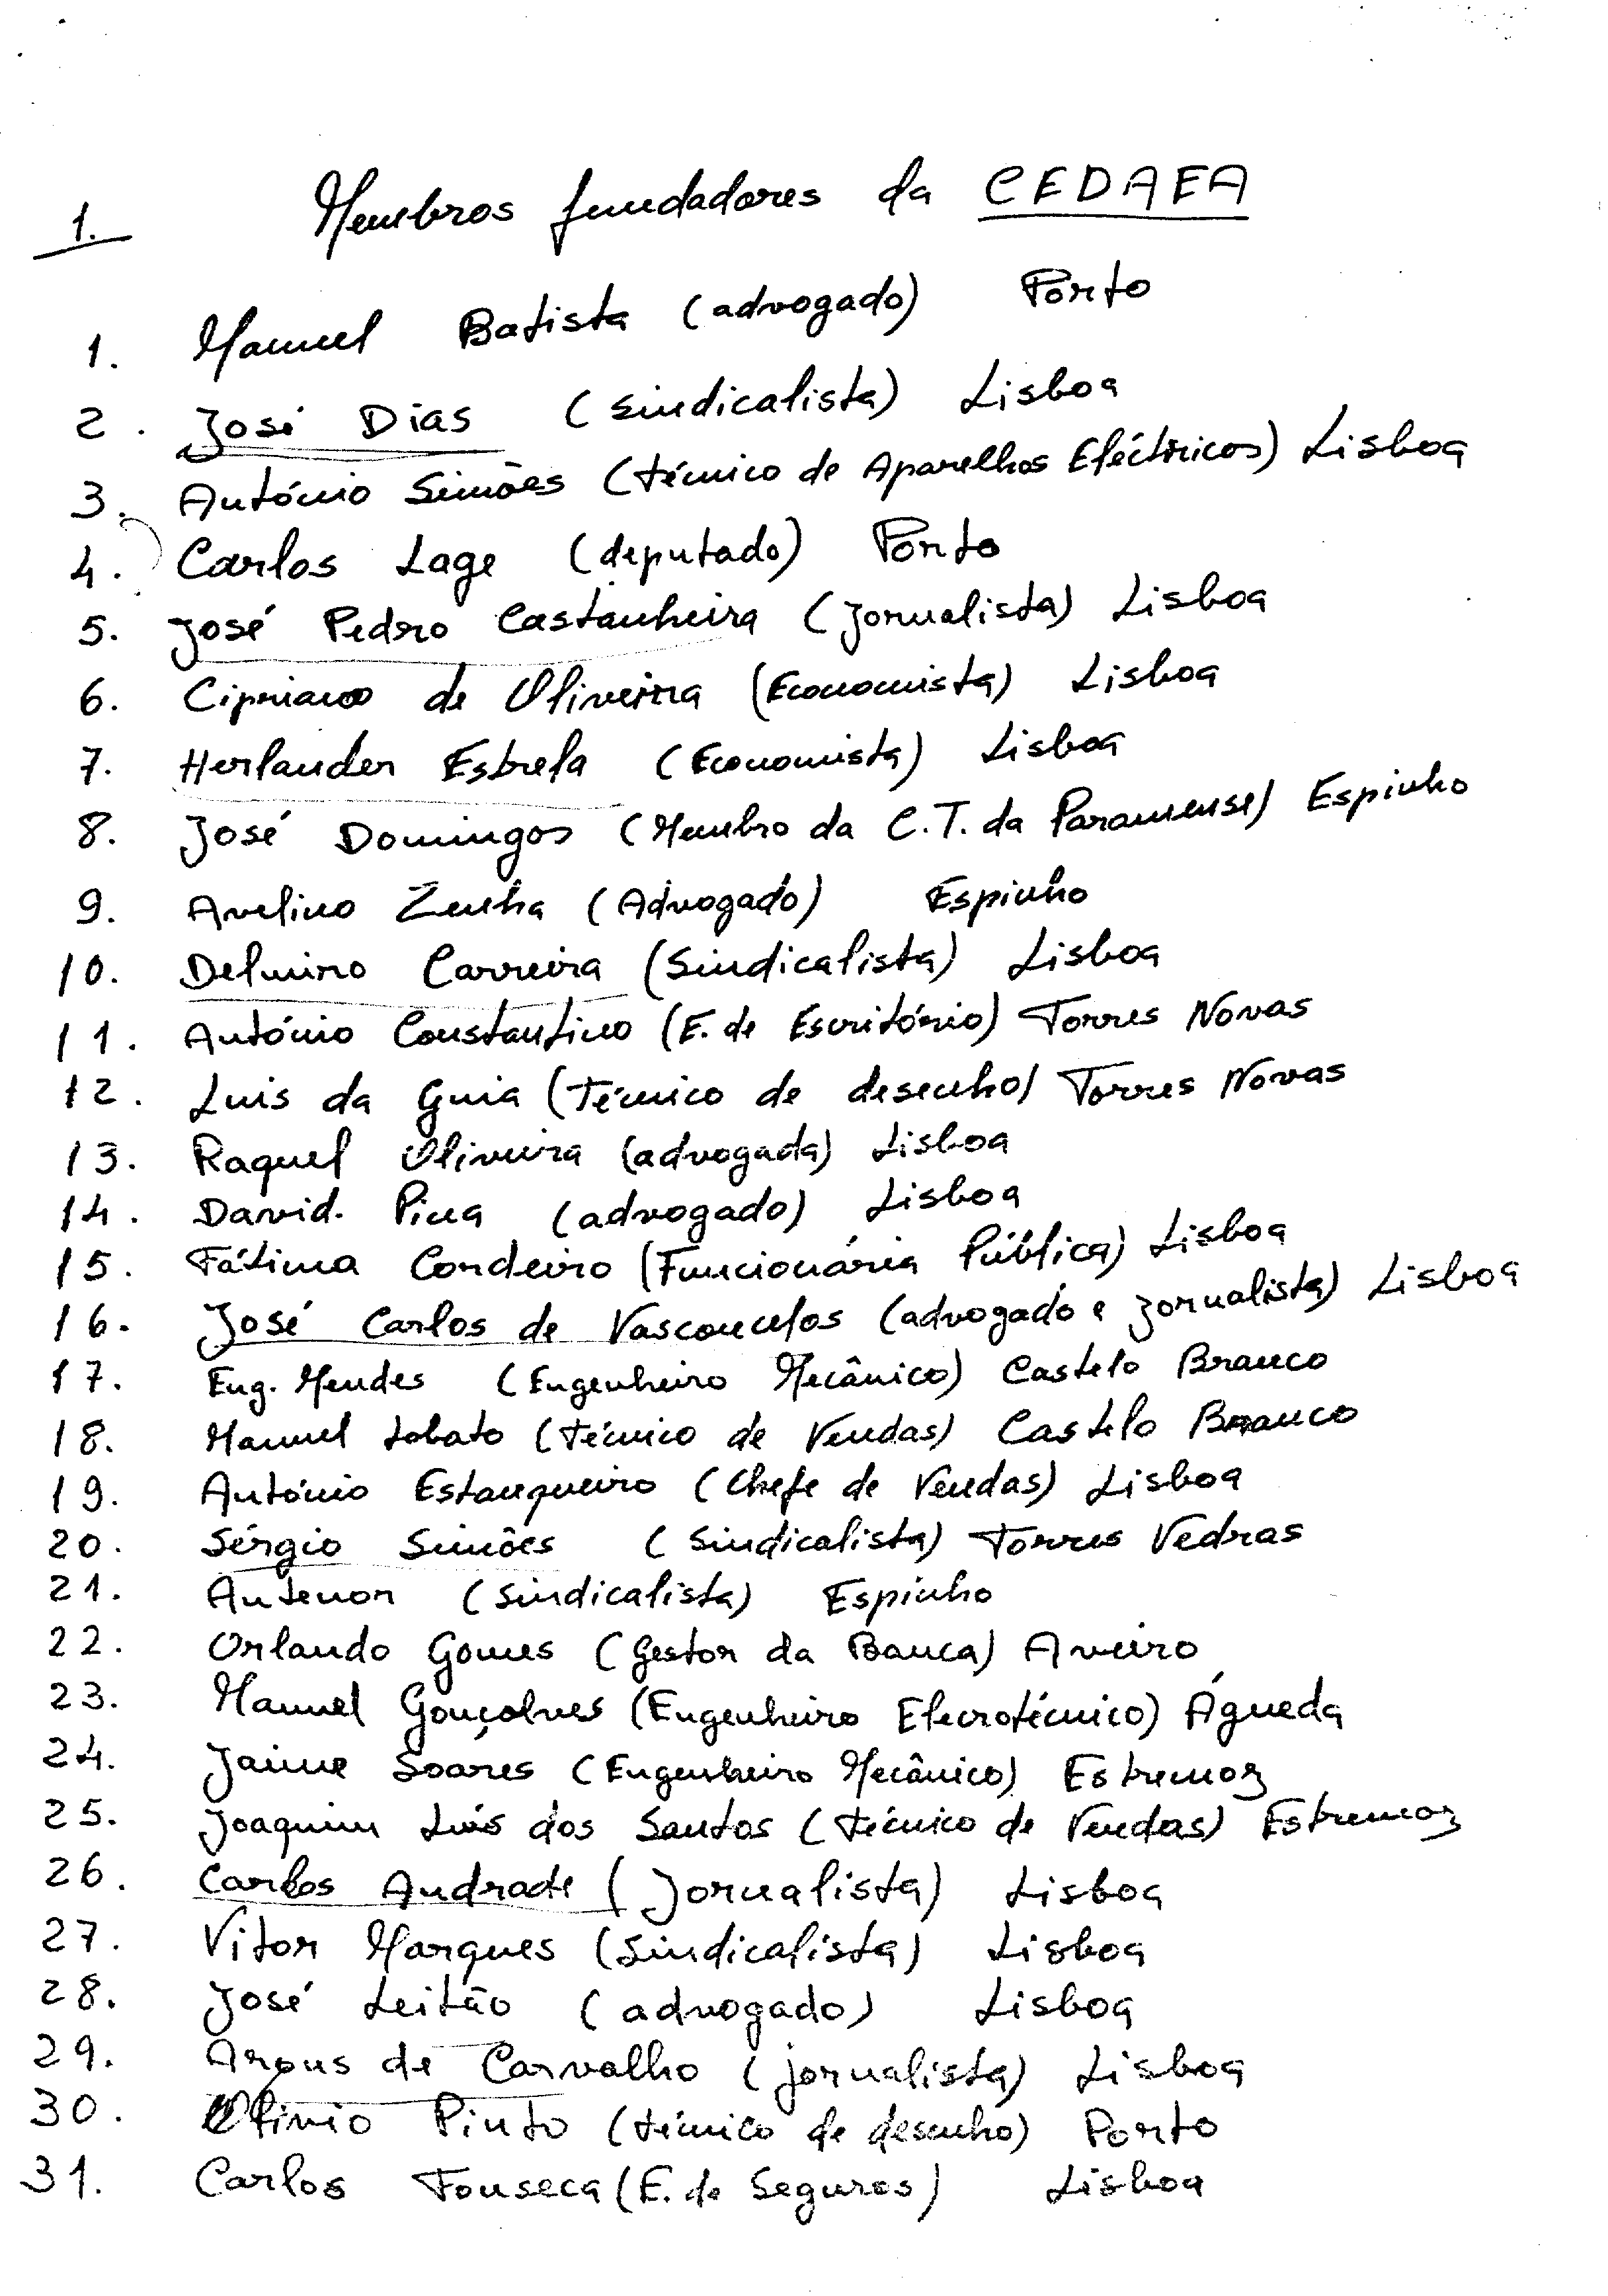 1. Membros fundadores da CEDAEA
1. Manuel Batista (advogado) Porto
2. José Dias (sindicalista) Lisboa
3. António Simões (técnico de Aparelhos Eléctricos) Lisboa
4. Carlos Lage (deputado) Porto
5. José Pedro Castanheira (jornalista) Lisboa
6. Cipriano de Oliveira (Economista) Lisboa
7. Herlander Estrela (Economista) Lisboa
8. José Domingos (Membro da C.T. da Paramense) Espinho
9. Avelino Zenha (Advogado) Espinho
10. Delmiro Carreira (Sindicalista) Lisboa
11. António Constantino (E. de Escritório) Torres Novas
12. Luis da Guia (Técnico de desenho) Torres Novas
13. Raquel Oliveira (advogada) Lisboa
14. David. Pina (advogado) Lisboa
15. Fátima Cordeiro (Funcionária Pública) Lisboa
16. José Carlos de Vasconcelos (advogado e jornalista) Lisboa
17. Eng. Mendes (Engenheiro Mecânico) Castelo Branco
18. Manuel Lobato (técnico de Vendas) Castelo Branco
19. António Estanqueiro (Chefe de Vendas) Lisboa
20. Sérgio Simões (Sindicalista) Torres Vedras
21. Antenor (Sindicalista) Espinho
22. Orlando Gomes (Gestor da Banca) Aveiro
23. Manuel Gonçalves (Engenheiro Elecrotécnico) Águeda
24. Jaime Soares (Engenheiro Mecânico) Estremoz
25. Joaquim Luís dos Santos (técnico de Vendas) Estremoz
26. Carlos Andrade (Jornalista) Lisboa
27. Vitor Marques (Sindicalista) Lisboa
28. José Leitão (advogado) Lisboa
29. Arons de Carvalho (jornalista) Lisboa
30. Olívio Pinto (técnico de desenho) Porto
31. Carlos Fonseca (E. de Seguros) Lisboa